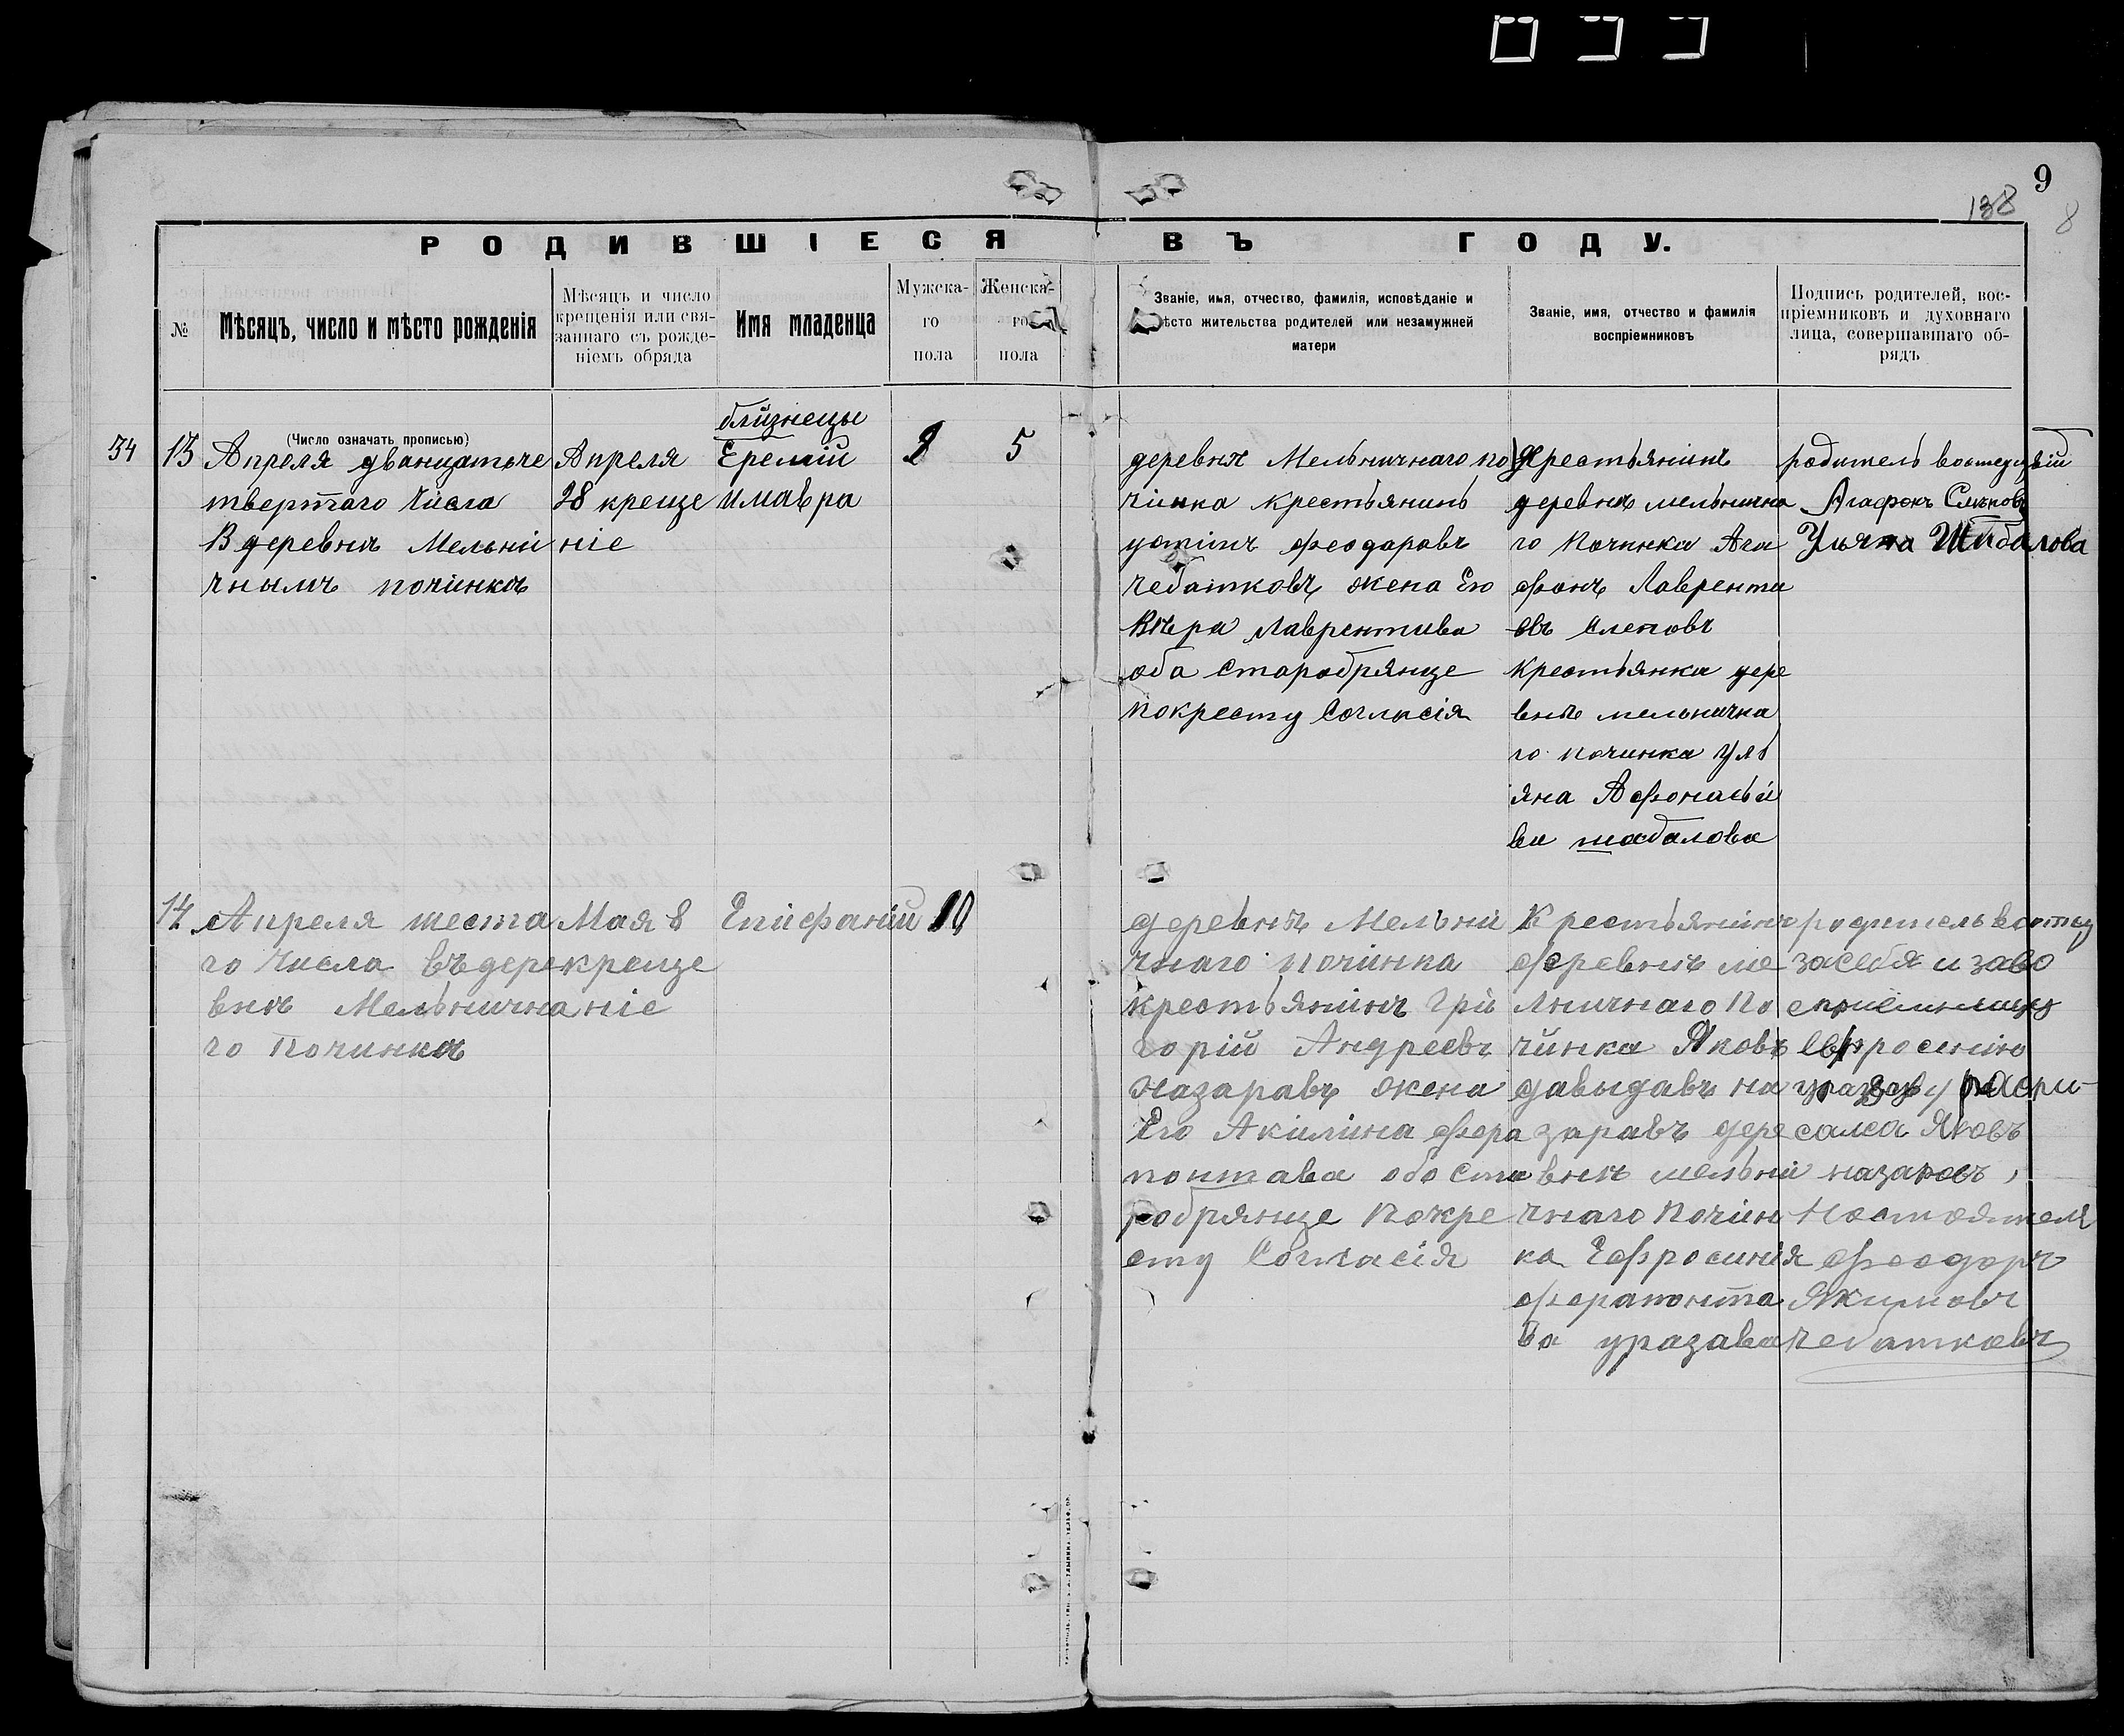 9
138
8
РОДИВШІЕСЯ ВЪ ГОДУ.
№
Мѣсяцъ, число и мѣсто рожденія
Мѣсяцъ и число
крещенія или свя-
заннаго съ рожде-
ніемъ обряда
Имя младенца
Мужска-
го
пола
Женска-
го
пола
Званіе, имя, отчество, фамилія, исповѣданіе и
мѣсто жительства родителей или незамужней
матери
Званіе, имя, отчество и фамилія
воспріемниковъ
Подпись родителей, вос-
пріемниковъ и духовнаго
лица, совершавшаго об-
рядъ
(Число означать прописью)
34
13
Апреля дванцатьче
твертаго числа
В деревнѣ Мельни
чнымъ починкѣ
Апреля
28 креще
ніе
близнецы
Еремій
имавра
5
деревня Мельничнаго по
чинка крестьянинъ
устінъ феодаровъ
чебатковъ жена Его
Вѣра лаврентива
оба старобрянце
покресту Согласія
крестьянинъ
деревнѣ мельнична
го Починка Ага
фонъ Лаврентии
евъ слеповъ
крестьянка дере
внѣ мельнична
го починка Улб
яна Афонасьи
ва шабалова
родитель
Агафонъ Слѣповъ
Уляна Шабалова
14
Апреля шеста
го числа въдере
внѣ Мельнична
го Починка
Мая 8
креще
ніе
Епифаній
10
деревнѣ Мельни
чнаго починка
крестьянинъ Гри
горій Андреевъ
назаравъ жена
Его Акилина фера
понтава оба ста
робрянце Покре
сту Согласія
Крестьянинъ
деревнѣ ме
лничнаго По
чинка Яковъ
давыдавъ на
заравъ дере
внѣ мельни
чнаго Почин
ка Ефросинія
ферапонта
ва уразава
родитель
засебя и заво
сприёмницу
Евфросинію
уразаву росри-
салса Яковъ
назаровъ,
Настоятеля
феодоръ
Якимовъ
чебатковъ